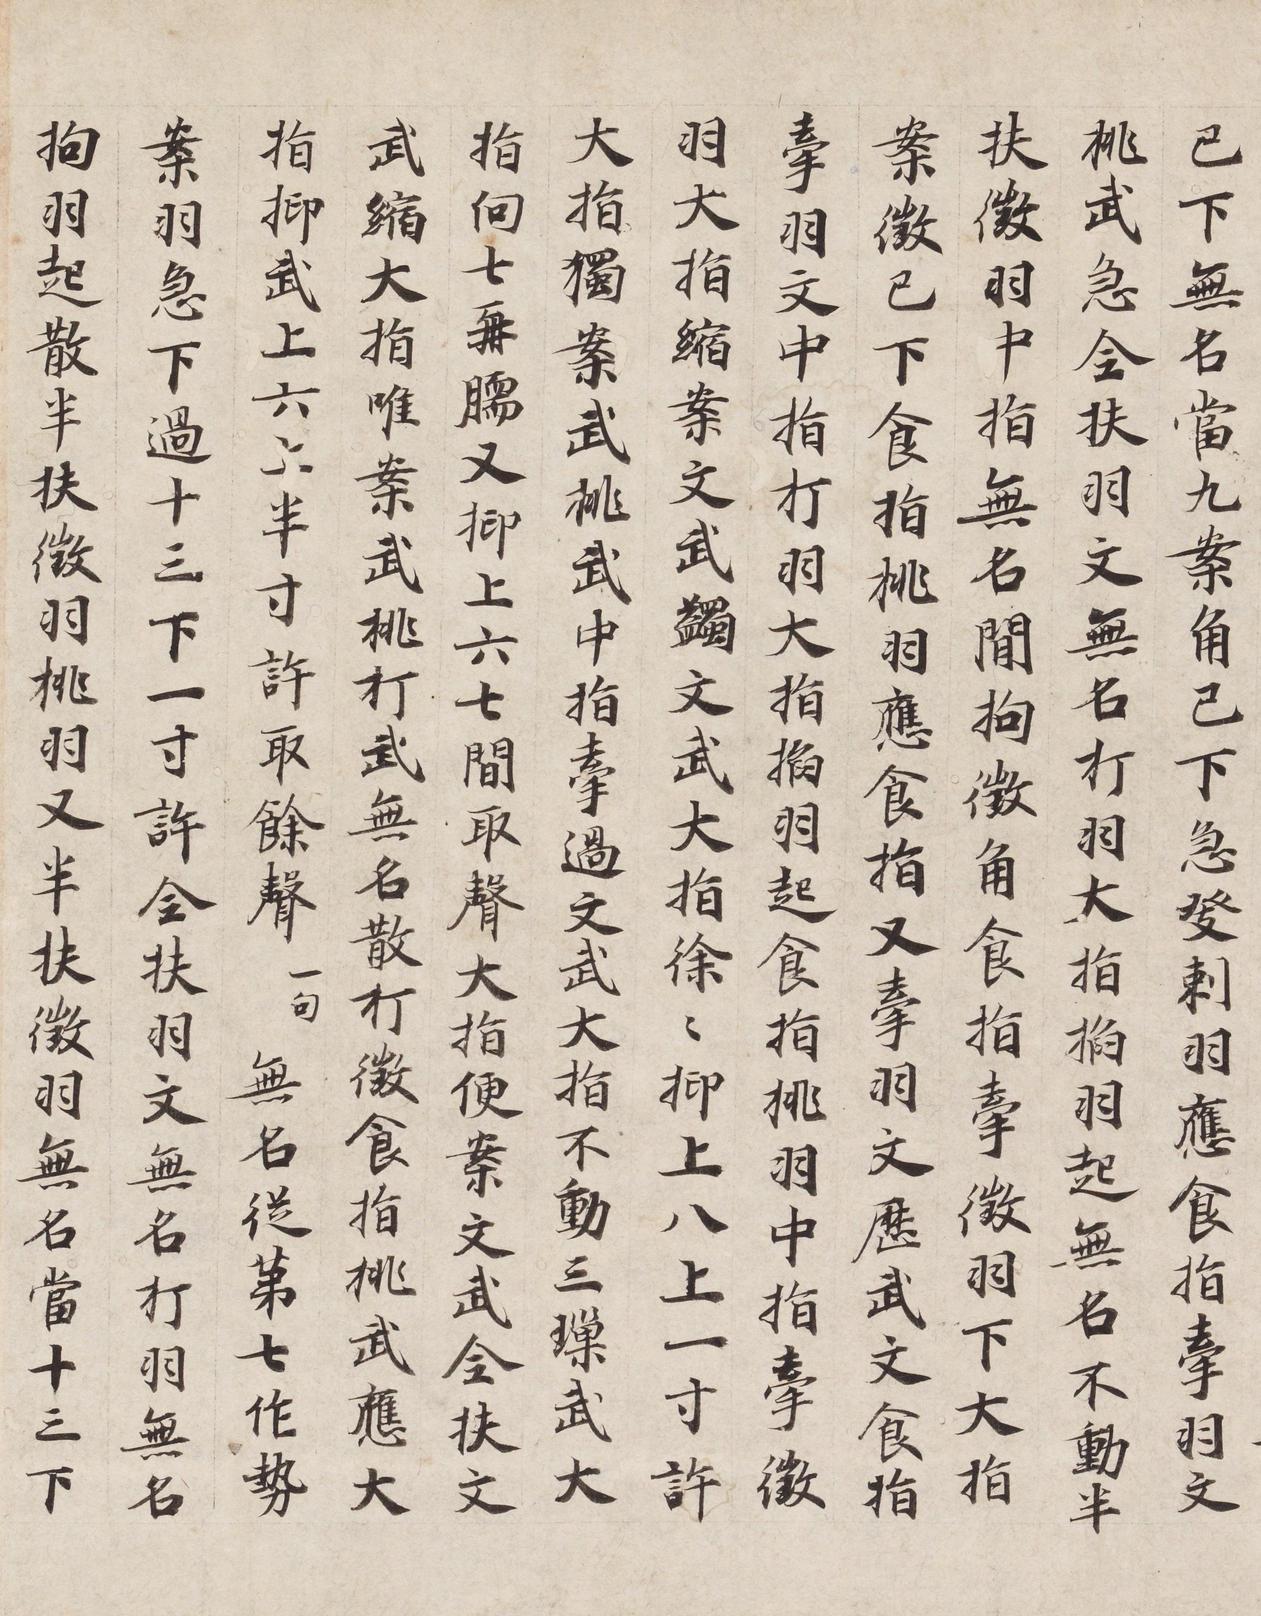 已下無名當九案角已下急發剌羽應食指牽羽文
桃武急全扶羽文無名打羽大指掐羽起無名不動半
扶徵羽中指無名間拘徵角食指牽徵羽下大指
案徵已下食指桃羽應食指又牽羽文歷武文食指
牽羽文中指打羽大指掐羽起食指桃羽中指牽徵
羽大指縮案文武蠲文武大指徐〻抑上八上一寸許
大指獨案武桃武中指牽過文武大指不動三璅武大
指向七兼臑又抑上六七間取聲大指便案文武全扶文
武縮大指唯案武桃打武無名散打徵食指桃武應大
指抑武上六上半寸許取餘聲一句無名從第七作勢
案羽急下過十三下一寸許全扶羽文無名打羽無名
拘羽起散半扶徵羽桃羽又半扶徵羽無名當十三下